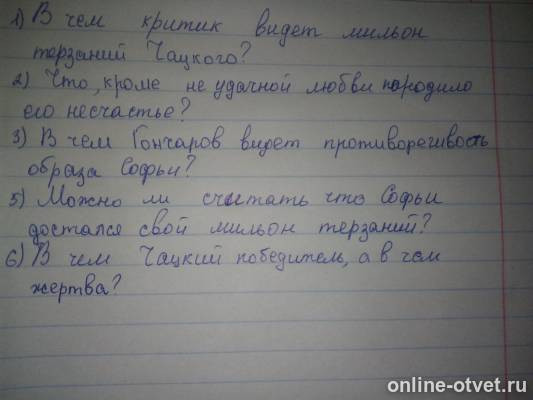 1) В чем критик видет мильон
терзаний Чацкого?
2) Что, кроме не удачной любви породило
его несчастье?
3) В чем Гончаров видет противоречивость
образа Софьи?
5) Можно ли считать что Софьи
достался свой мильон терзаний?
6) В чем Чацкий победитель, а в чем
жертва?
online-otvet.ru